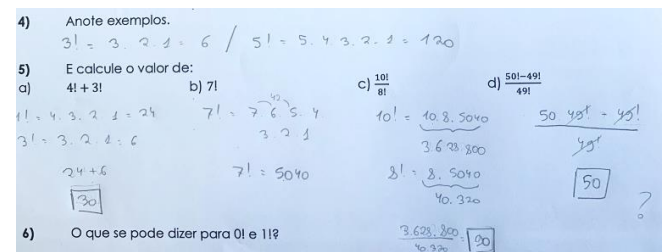 4) Anote exemplos.
3! = 3. 2. 1 = 6 / 5! = 5. 4. 3. 2. 1 = 120
5) E calcule o valor de:
a) 4! + 3! b) 7! c) 10!/8! d) 50!-49!/49!
4! = 4. 3. 2 1 = 24
3! = 3. 2. 1 = 6
24 + 6
30
42
7! = 7 6. 5. 4
3. 2. 1
7! = 5040
10! = 10. 8. 5040
3.628.800
8! = 8. 5040
40.320
3.628.800/40.320 = 90
50 49! - 49!
49!
50
?
6) O que se pode dizer para 0! e 1!?